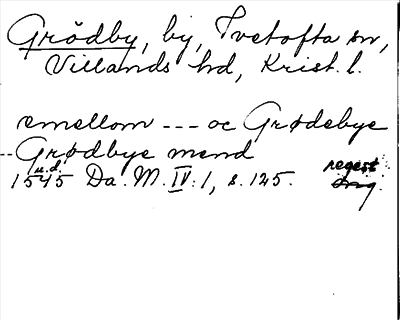 Grödby, by, Tvetofta sn,
Villands hd, Krist. l.
emellom --- oc Grødebye
-- Grødbye mend
u.d. regest
1545 Da. M. IV: 1, s. 125. Orig